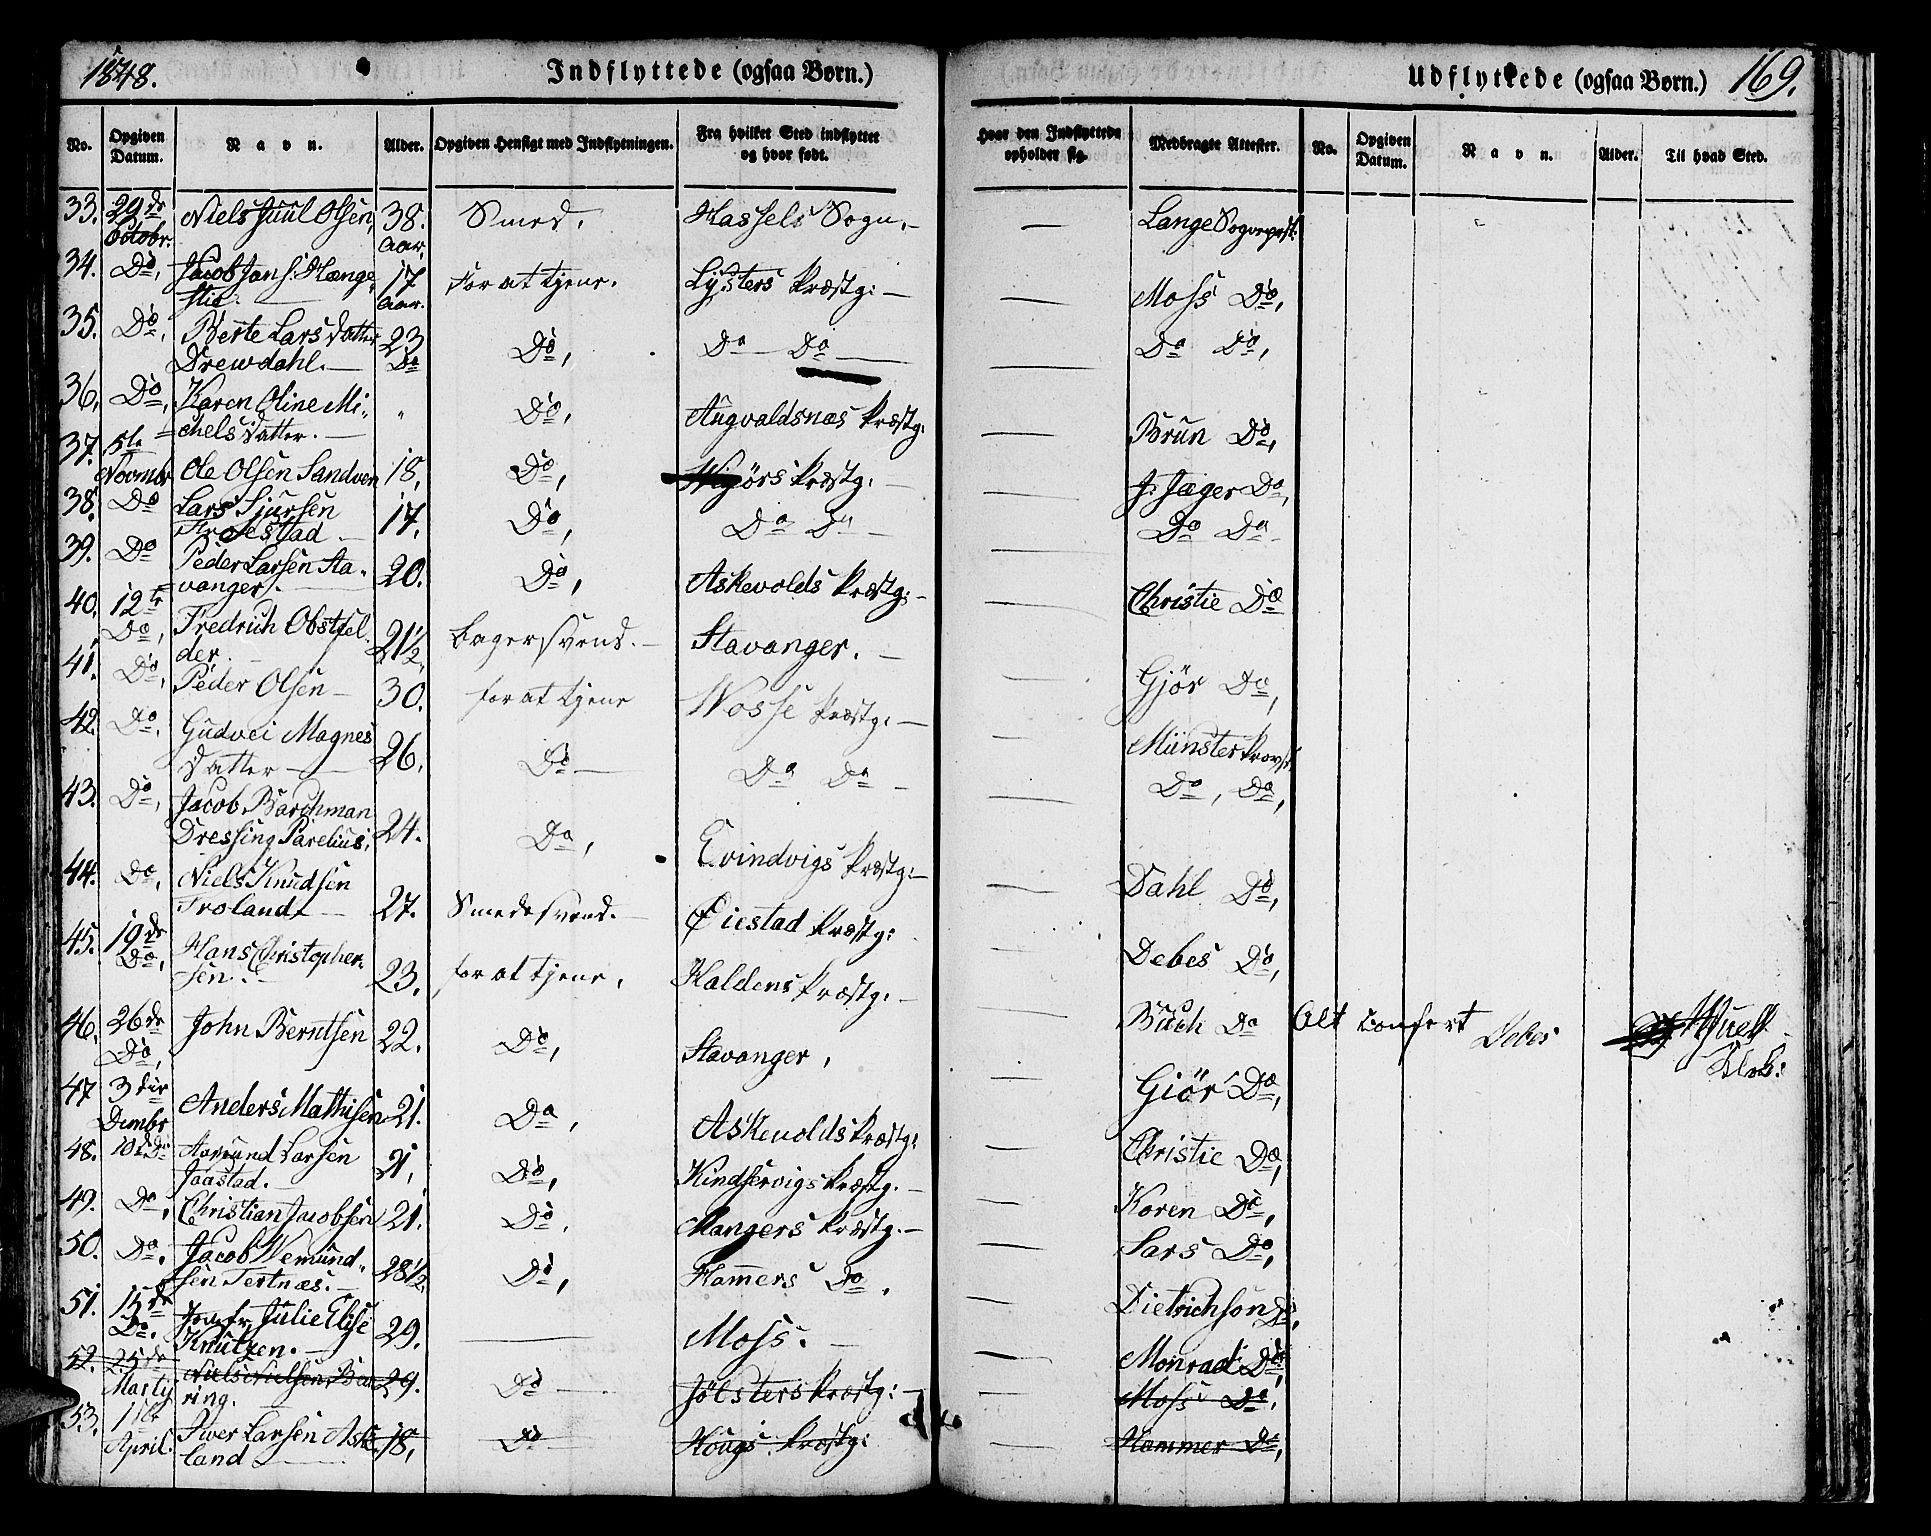 1848.
Indflyttede (ogsaa Børn.)
No.
Opgiven Datum.
Navn.
Alder.
Opgiven Hensigt med Indflytningen.
Fra hvilket Sted indflyttet og hvor født.
Hvor den Indflyttede opholder sig.
Medbragte Attester.
Udflyttede (ogsaa Børn.)
169.
No.
Opgiven Datum.
Navn.
Alder.
Til hvad Sted.
33. 29de Niels Juul Olsen, 38. Smed. Hassels Sogn. — Lange Sogneprst.
Octobr. Aar,
34. Do, Jacob Jans: Hænge 17 For at tjene. Lysters Præstg: — Moss Do,
stie. — Aar.
35. Do, Berte Lars Datter 23 Do, Do — Do — Do Do,
Drewdahl. — Do
36, Do, Karen Oline Mi- " Do, Augvaldsnæs Præstg: — Brun Do,
chels Datter. —
37. 5te
Novmbr Ole Olsen Sandven 18, Do, ørs Præstg: — J: Jæger Do,
38. Do Lars Sjursen 17. Do, Do Do — Do Do
Frolestad —
39. Do Peder Larsen Sta- 20. Do, Askevolds Præstg: — Christie Do
vanger. —
40. 12te Fredrich Obstfel- 21½ Bagersvend. — Stavanger. — Gjør Do,
Do, der. —
41. Do, Peder Olsen — 30. for at tjene Wosse Præstg: — Münster Provst.
42. Do, Gudvei Magnes 26, Do — Do Do — Do, Do,
Datter —
43. Do, Jacob Barchman 24. Do, Evindvigs Præstg: — Dahl Do,
Dressing Parelius,
44. Do, Niels Knudsen 27. Smedesvend. — Øiestad Præstg: — Debes Do,
Froland. —
45. 19de Hans Christopher- 23. for at tjene, Haldens Præstg: — Buch Do
Do, sen. —
Alt Confert Debes
46. 26de John Berntsen 22. Do, Stavanger, — Giør Do,
Do,
47 3die Anders Mathisen 21. Do, Askevolds Præstg: — Christie Do,
Dcmbr
48. 10de Do Aamund Larsen 21, Do, Kindservigs Præstg. — Koren Do,
Jaastad.
49. Do, Christian Jacobsen 21. Do, Mangers Præstg. — Sars Do,
50. Do. Jacob Wemund- 28½ Do, Hammers Do. — Dietrichson Do,
sen Tertnæs. —
51. 15de Jomfr Julie Elise 29. — Moss. — Monrad Do,
Do. Knutzen. —
52. 25de Niels Nielsen 29. Do — Jølsters Præstg: — Moss Do.
Marty ring.
53. 11te Iver Larsen Aske 18, Do Hougs Præstg: — Hammer Do,
April. land —